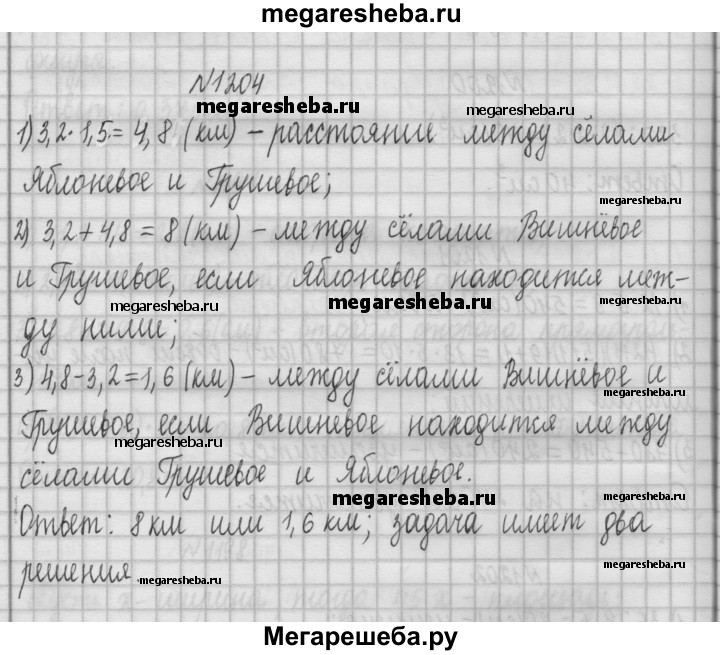 megaresheba.ru
N1204
megaresheba.ru
megaresheba.ru
1) 3,2·1,5=4,8 (км) – расстояние между сёлами
Яблоневое и Грушевое;
megaresheba.ru
2) 3,2+4,8=8(км) – между сёлами Вишнёвое
и Грушевое, если Яблоневое находится меж-
megaresheba.ru
megaresheba.ru
megaresheba.ru
ду ними;
3) 4,8-3,2=1,6 (км) – между сёлами Вишнёвое и
Грушевое, если Вишневое находится между
megaresheba.ru
megaresheba.ru
сёлами Грушевое и Яблоневое.
megaresheba.ru
Ответ: 8 км или 1,6 км; задача имеет два
решения.
megaresheba.ru
megaresheba.ru
megaresheba.ru
Мегарешеба.ру